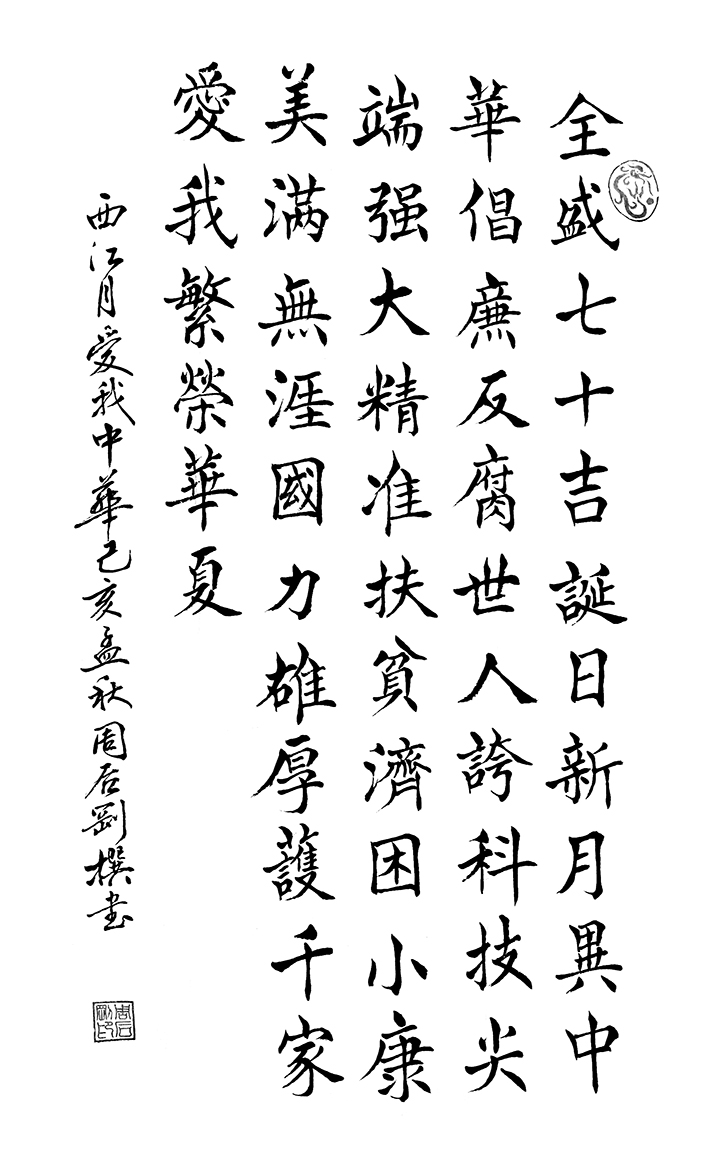 全盛七十吉誕日新月異中
華倡廉反腐世人誇科技尖
端强大精准扶貧濟困小康
美满無涯國力雄厚護千家
愛我繁榮華夏
西江月爱我中華己亥孟秋周后剛撰书